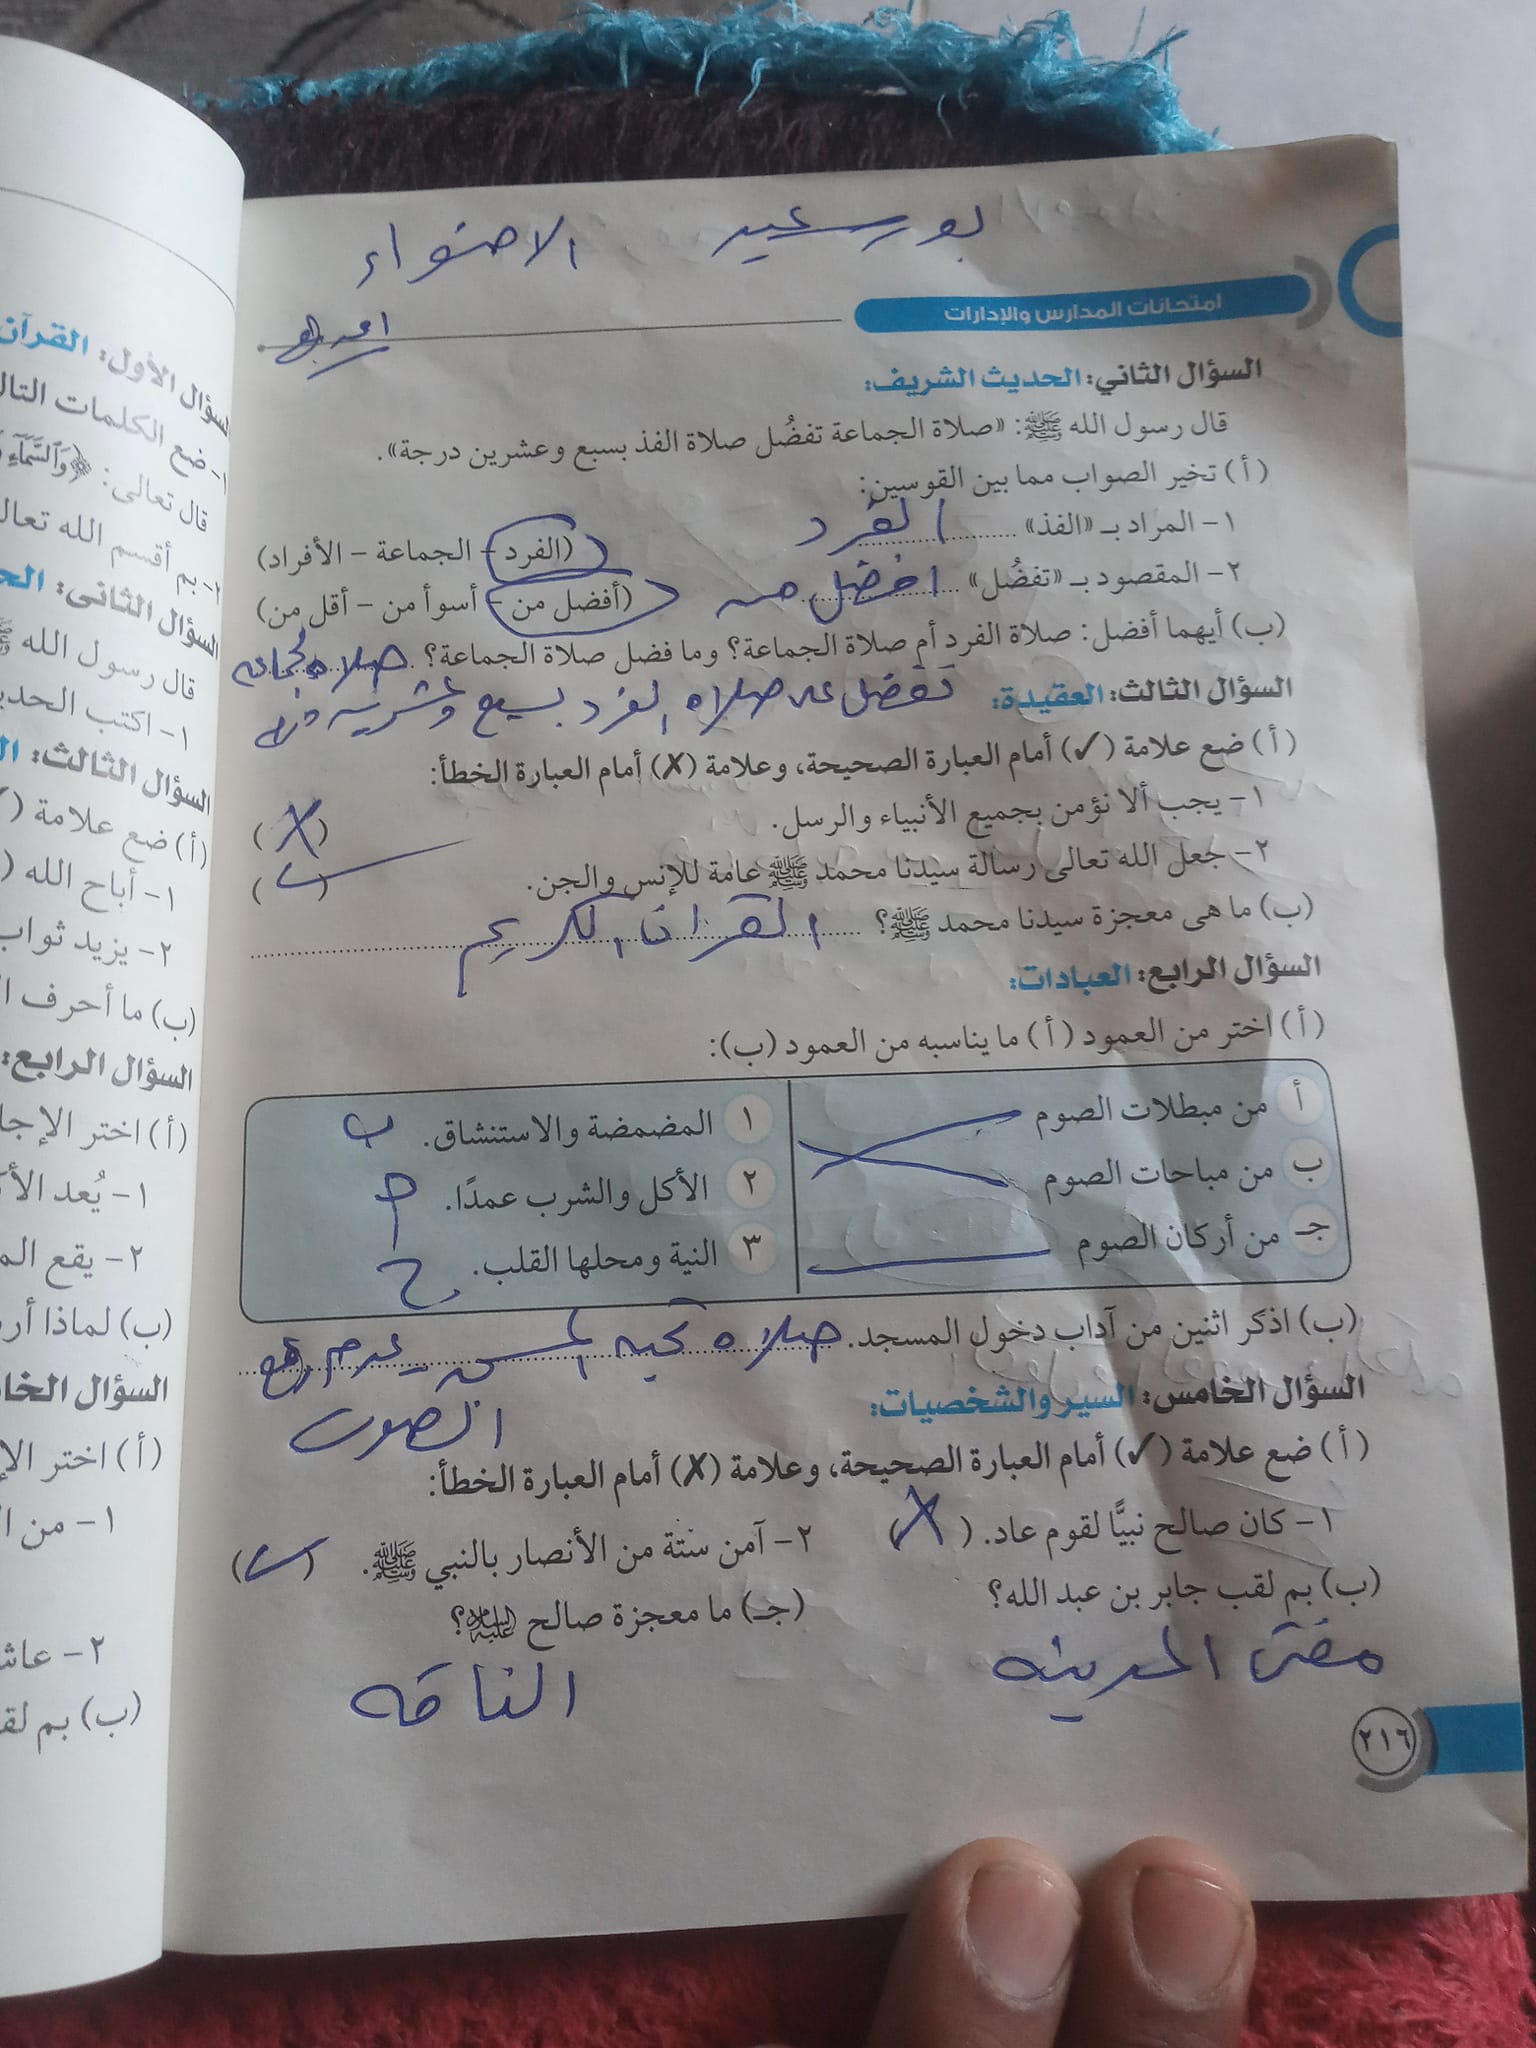 بورسعيد الاضواء
امتحانات المدارس والإدارات
السؤال الثاني: الحديث الشريف:
قال رسول الله ﷺ: «صلاة الجماعة تفضُل صلاة الفذ بسبع وعشرين درجة».
(أ) تخير الصواب مما بين القوسين:
١- المراد بـ «الفذ» الفرد (الفرد - الجماعة - الأفراد)
٢- المقصود بـ «تفضُل» افضل من (أفضل من - أسوأ من - أقل من)
(ب) أيهما أفضل: صلاة الفرد أم صلاة الجماعة؟ وما فضل صلاة الجماعة؟ صلاه الجماعه
السؤال الثالث: العقيدة: تفضل على صلاه الفرد بسبع وعشرين
(أ) ضع علامة (✓) أمام العبارة الصحيحة، وعلامة (✗) أمام العبارة الخطأ:
١- يجب ألا نؤمن بجميع الأنبياء والرسل. (✗)
٢- جعل الله تعالى رسالة سيدنا محمد ﷺ عامة للإنس والجن. (✓)
(ب) ما هى معجزة سيدنا محمد ﷺ؟ القران الكريم
السؤال الرابع: العبادات:
(أ) اختر من العمود (أ) ما يناسبه من العمود (ب):
أ من مبطلات الصوم ١ المضمضة والاستنشاق. ب
ب من مباحات الصوم ٢ الأكل والشرب عمدًا. أ
جـ من أركان الصوم ٣ النية ومحلها القلب. ج
(ب) اذكر اثنين من آداب دخول المسجد. صلاه تحيه المسجد عدم رفع
الصوت
السؤال الخامس: السير والشخصيات:
(أ) ضع علامة (✓) أمام العبارة الصحيحة، وعلامة (✗) أمام العبارة الخطأ:
١- كان صالح نبيًّا لقوم عاد. (✗) ٢- آمن ستة من الأنصار بالنبي ﷺ. (✓)
(ب) بم لقب جابر بن عبد الله؟ (جـ) ما معجزة صالح عليه السلام؟
مفتى المدينه الناقه
٢١٦
السؤال الأول: القرآن
١- ضع الكلمات
قال تعالى: ﴿وَالسَّمَاءِ
٢- بم أقسم الله
السؤال الثانى:
قال رسول الله ﷺ
١- اكتب
السؤال الثالث:
(أ) ضع علامة (
١- أباح الله (
٢- يزيد ثواب
(ب) ما أحرف
السؤال الرابع:
(أ) اختر
١- يُعد
٢- يقع
(ب) لماذا
السؤال
(أ) اختر
١- من
٢-
(ب) بم